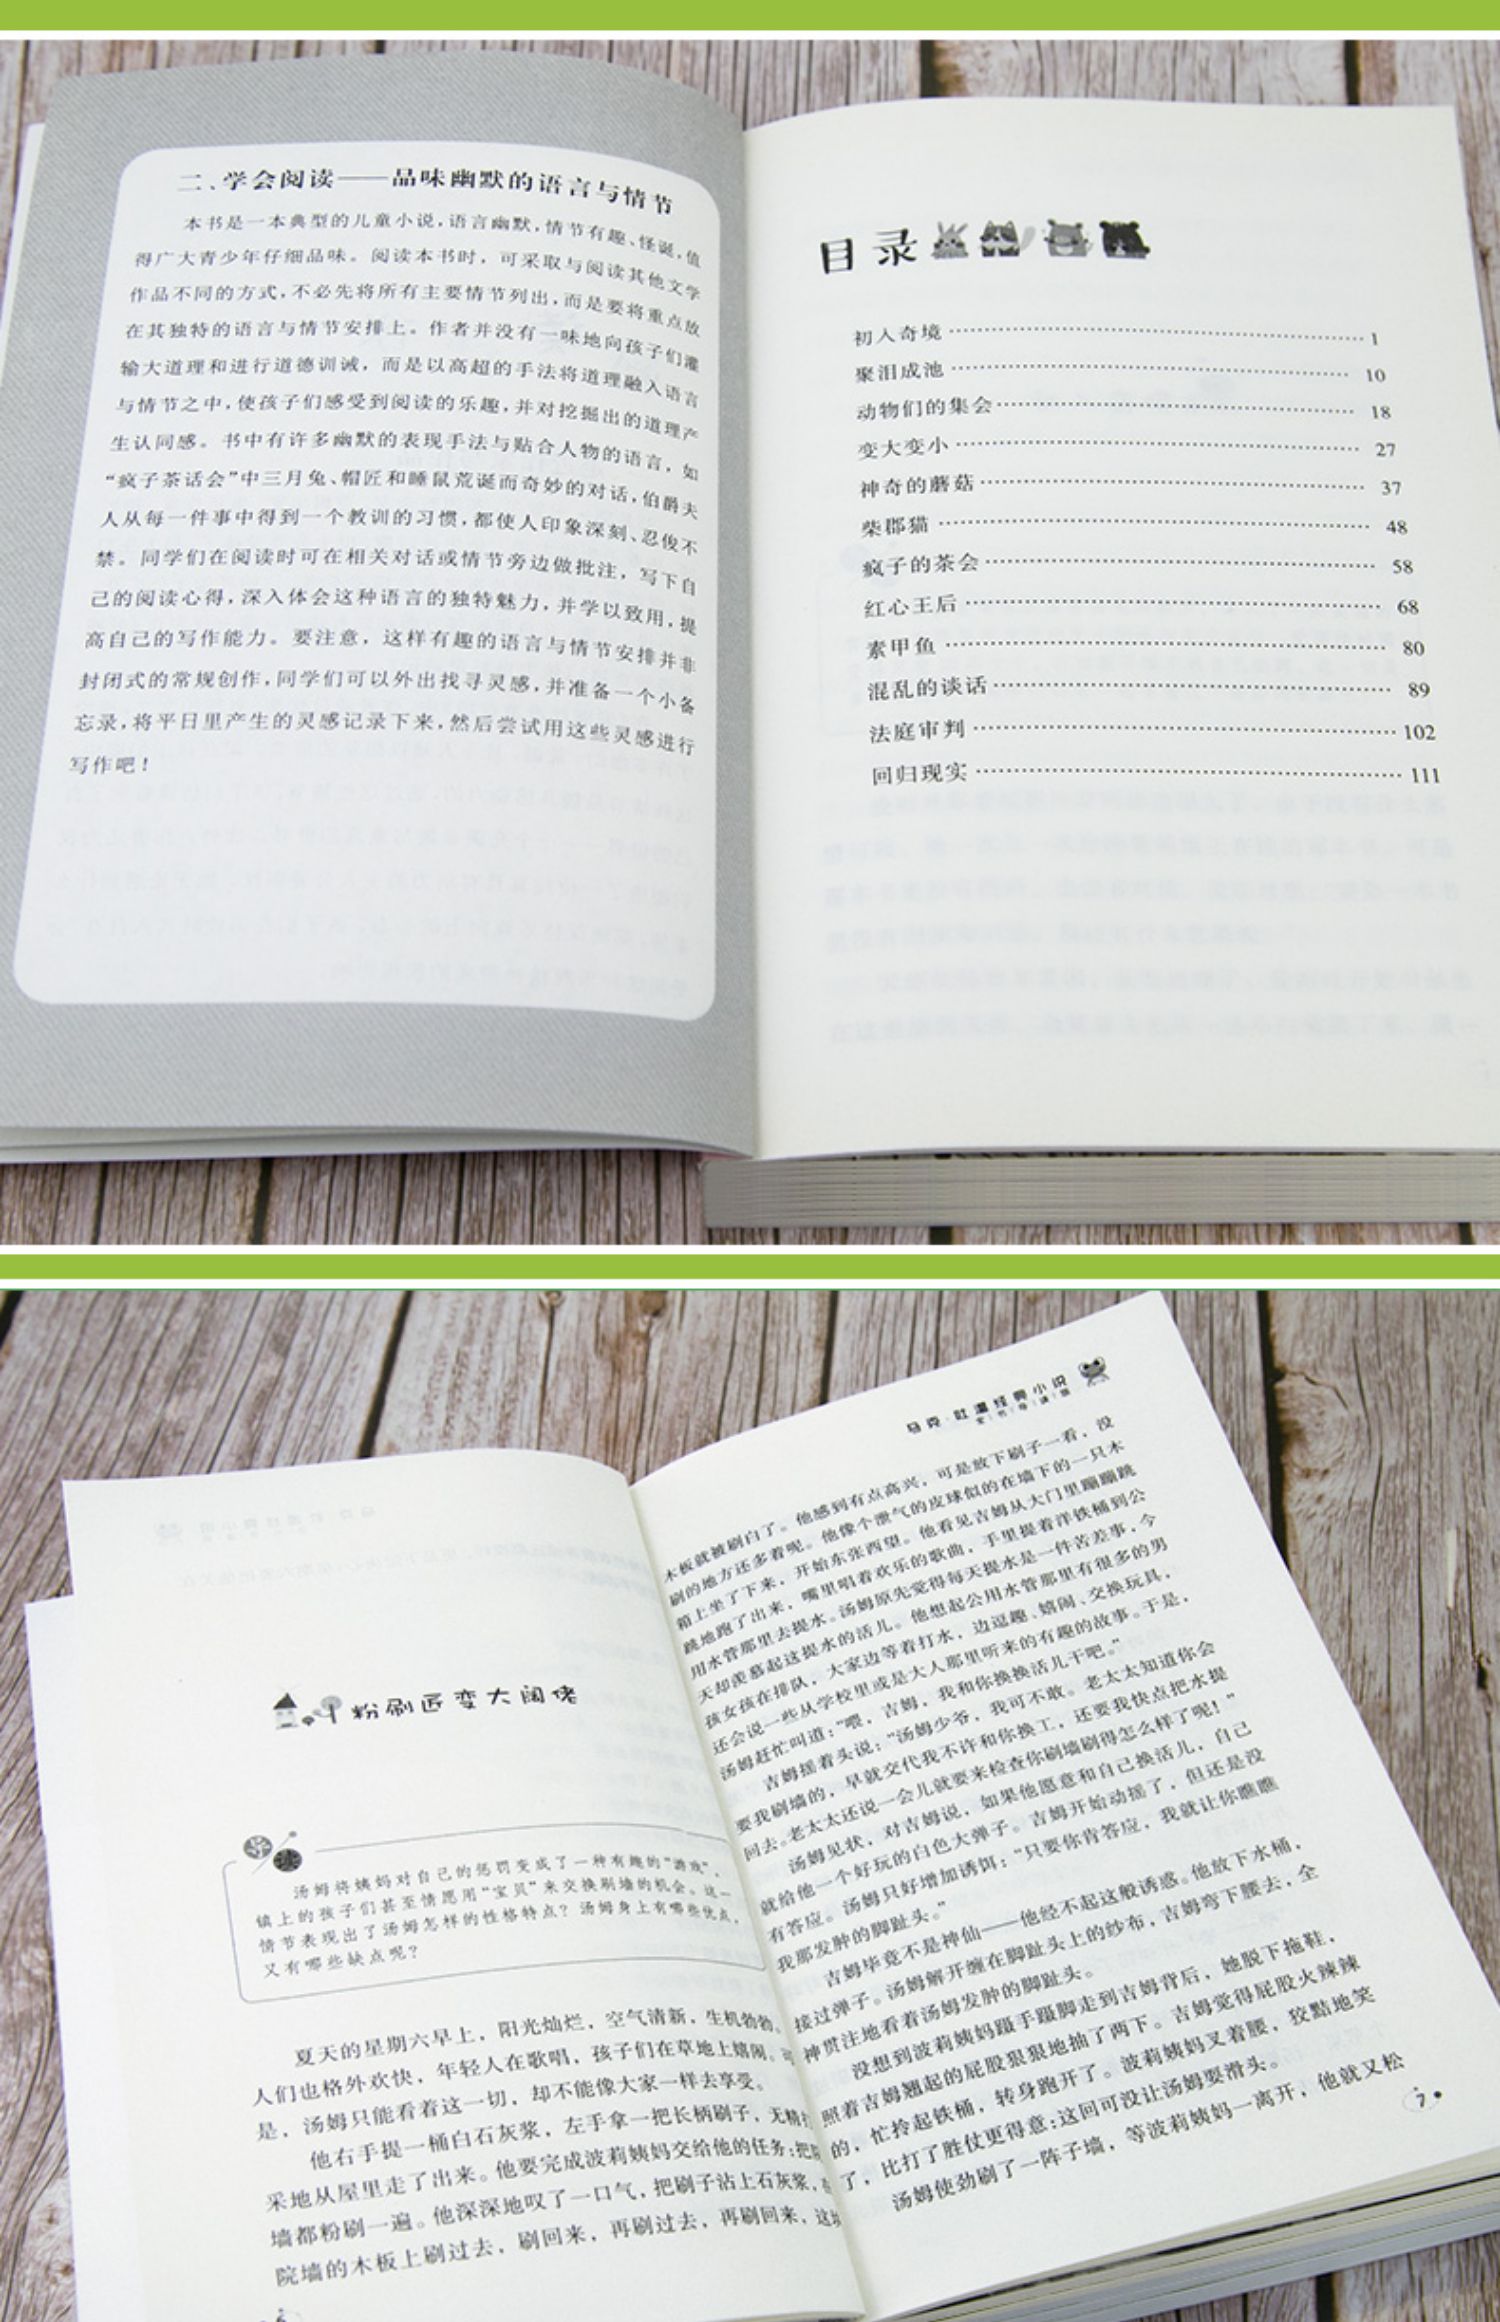 二、学会阅读——品味幽默的语言与情节
本书是一本典型的儿童小说,语言幽默,情节有趣、怪诞,值
得广大青少年仔细品味。阅读本书时,可采取与阅读其他文学
作品不同的方式,不必先将所有主要情节列出,而是要将重点放
在其独特的语言与情节安排上。作者并没有一味地向孩子们灌
输大道理和进行道德训诫,而是以高超的手法将道理融入语言
与情节之中,使孩子们感受到阅读的乐趣,并对挖掘出的道理产
生认同感。书中有许多幽默的表现手法与贴合人物的语言,如
“疯子茶话会”中三月兔、帽匠和睡鼠荒诞而奇妙的对话,伯爵夫
人从每一件事中得到一个教训的习惯,都使人印象深刻、忍俊不
禁。同学们在阅读时可在相关对话或情节旁边做批注,写下自
己的阅读心得,深入体会这种语言的独特魅力,并学以致用,提
高自己的写作能力。要注意,这样有趣的语言与情节安排并非
封闭式的常规创作,同学们可以外出找寻灵感,并准备一个小备
忘录,将平日里产生的灵感记录下来,然后尝试用这些灵感进行
写作吧!
目录
初入奇境 1
聚泪成池 10
动物们的集会 18
变大变小 27
神奇的蘑菇 37
柴郡猫 48
疯子的茶会 58
红心王后 68
素甲鱼 80
混乱的谈话 89
法庭审判 102
回归现实 111
粉刷匠变大阔佬
导读
汤姆将姨妈对自己的惩罚变成了一种有趣的“游戏”,
镇上的孩子们甚至情愿用“宝贝”来交换刷墙的机会。这一
情节表现出了汤姆怎样的性格特点?汤姆身上有哪些优点,
又有哪些缺点呢?
夏天的星期六早上,阳光灿烂,空气清新,生机勃勃。
人们也格外欢快,年轻人在歌唱,孩子们在草地上嬉闹。可
是,汤姆只能看着这一切,却不能像大家一样去享受。
他右手提一桶白石灰浆,左手拿一把长柄刷子,无精打
采地从屋里走了出来。他要完成波莉姨妈交给他的任务:把
墙都粉刷一遍。他深深地叹了一口气,把刷子沾上石灰浆,
院墙的木板上刷过去,刷回来,再刷过去,再刷回来,这
6
马克·吐温经典小说
全书导读版
木板就被刷白了。他感到有点高兴,可是放下刷子一看,没
刷的地方还多着呢。他像个泄气的皮球似的在墙下的一只木
箱上坐了下来,开始东张西望。他看见吉姆从大门里蹦蹦跳
跳地跑了出来,嘴里唱着欢乐的歌曲,手里提着洋铁桶到公
用水管那里去提水。汤姆原先觉得每天提水是一件苦差事,今
天却羡慕起这提水的活儿。他想起公用水管那里有很多的男
孩女孩在排队,大家边等着打水,边逗趣、嬉闹、交换玩具,
还会说一些从学校里或是大人那里听来的有趣的故事。于是,
汤姆赶忙叫道:“喂,吉姆,我和你换换活儿干吧。”
吉姆摇着头说:“汤姆少爷,我可不敢。老太太知道你会
要我刷墙的,早就交代我不许和你换工,还要我快点把水提
回去。老太太还说一会儿就要来检查你刷墙刷得怎么样了呢!”
汤姆见状,对吉姆说,如果他愿意和自己换活儿,自己
就给他一个好玩的白色大弹子。吉姆开始动摇了,但还是没
有答应。汤姆只好增加诱饵:“只要你肯答应,我就让你瞧瞧
我那发肿的脚趾头。”
吉姆毕竟不是神仙——他经不起这般诱惑。他放下水桶,
接过弹子。汤姆解开缠在脚趾头上的纱布,吉姆弯下腰去,全
神贯注地看着汤姆发肿的脚趾头。
没想到波莉姨妈蹑手蹑脚走到吉姆背后,她脱下拖鞋,
照着吉姆翘起的屁股狠狠地抽了两下。吉姆觉得屁股火辣辣
的,忙拎起铁桶,转身跑开了。波莉姨妈叉着腰,狡黠地笑
了,比打了胜仗更得意:这回可没让汤姆耍滑头。
汤姆使劲刷了一阵子墙,等波莉姨妈一离开,他就又松
7